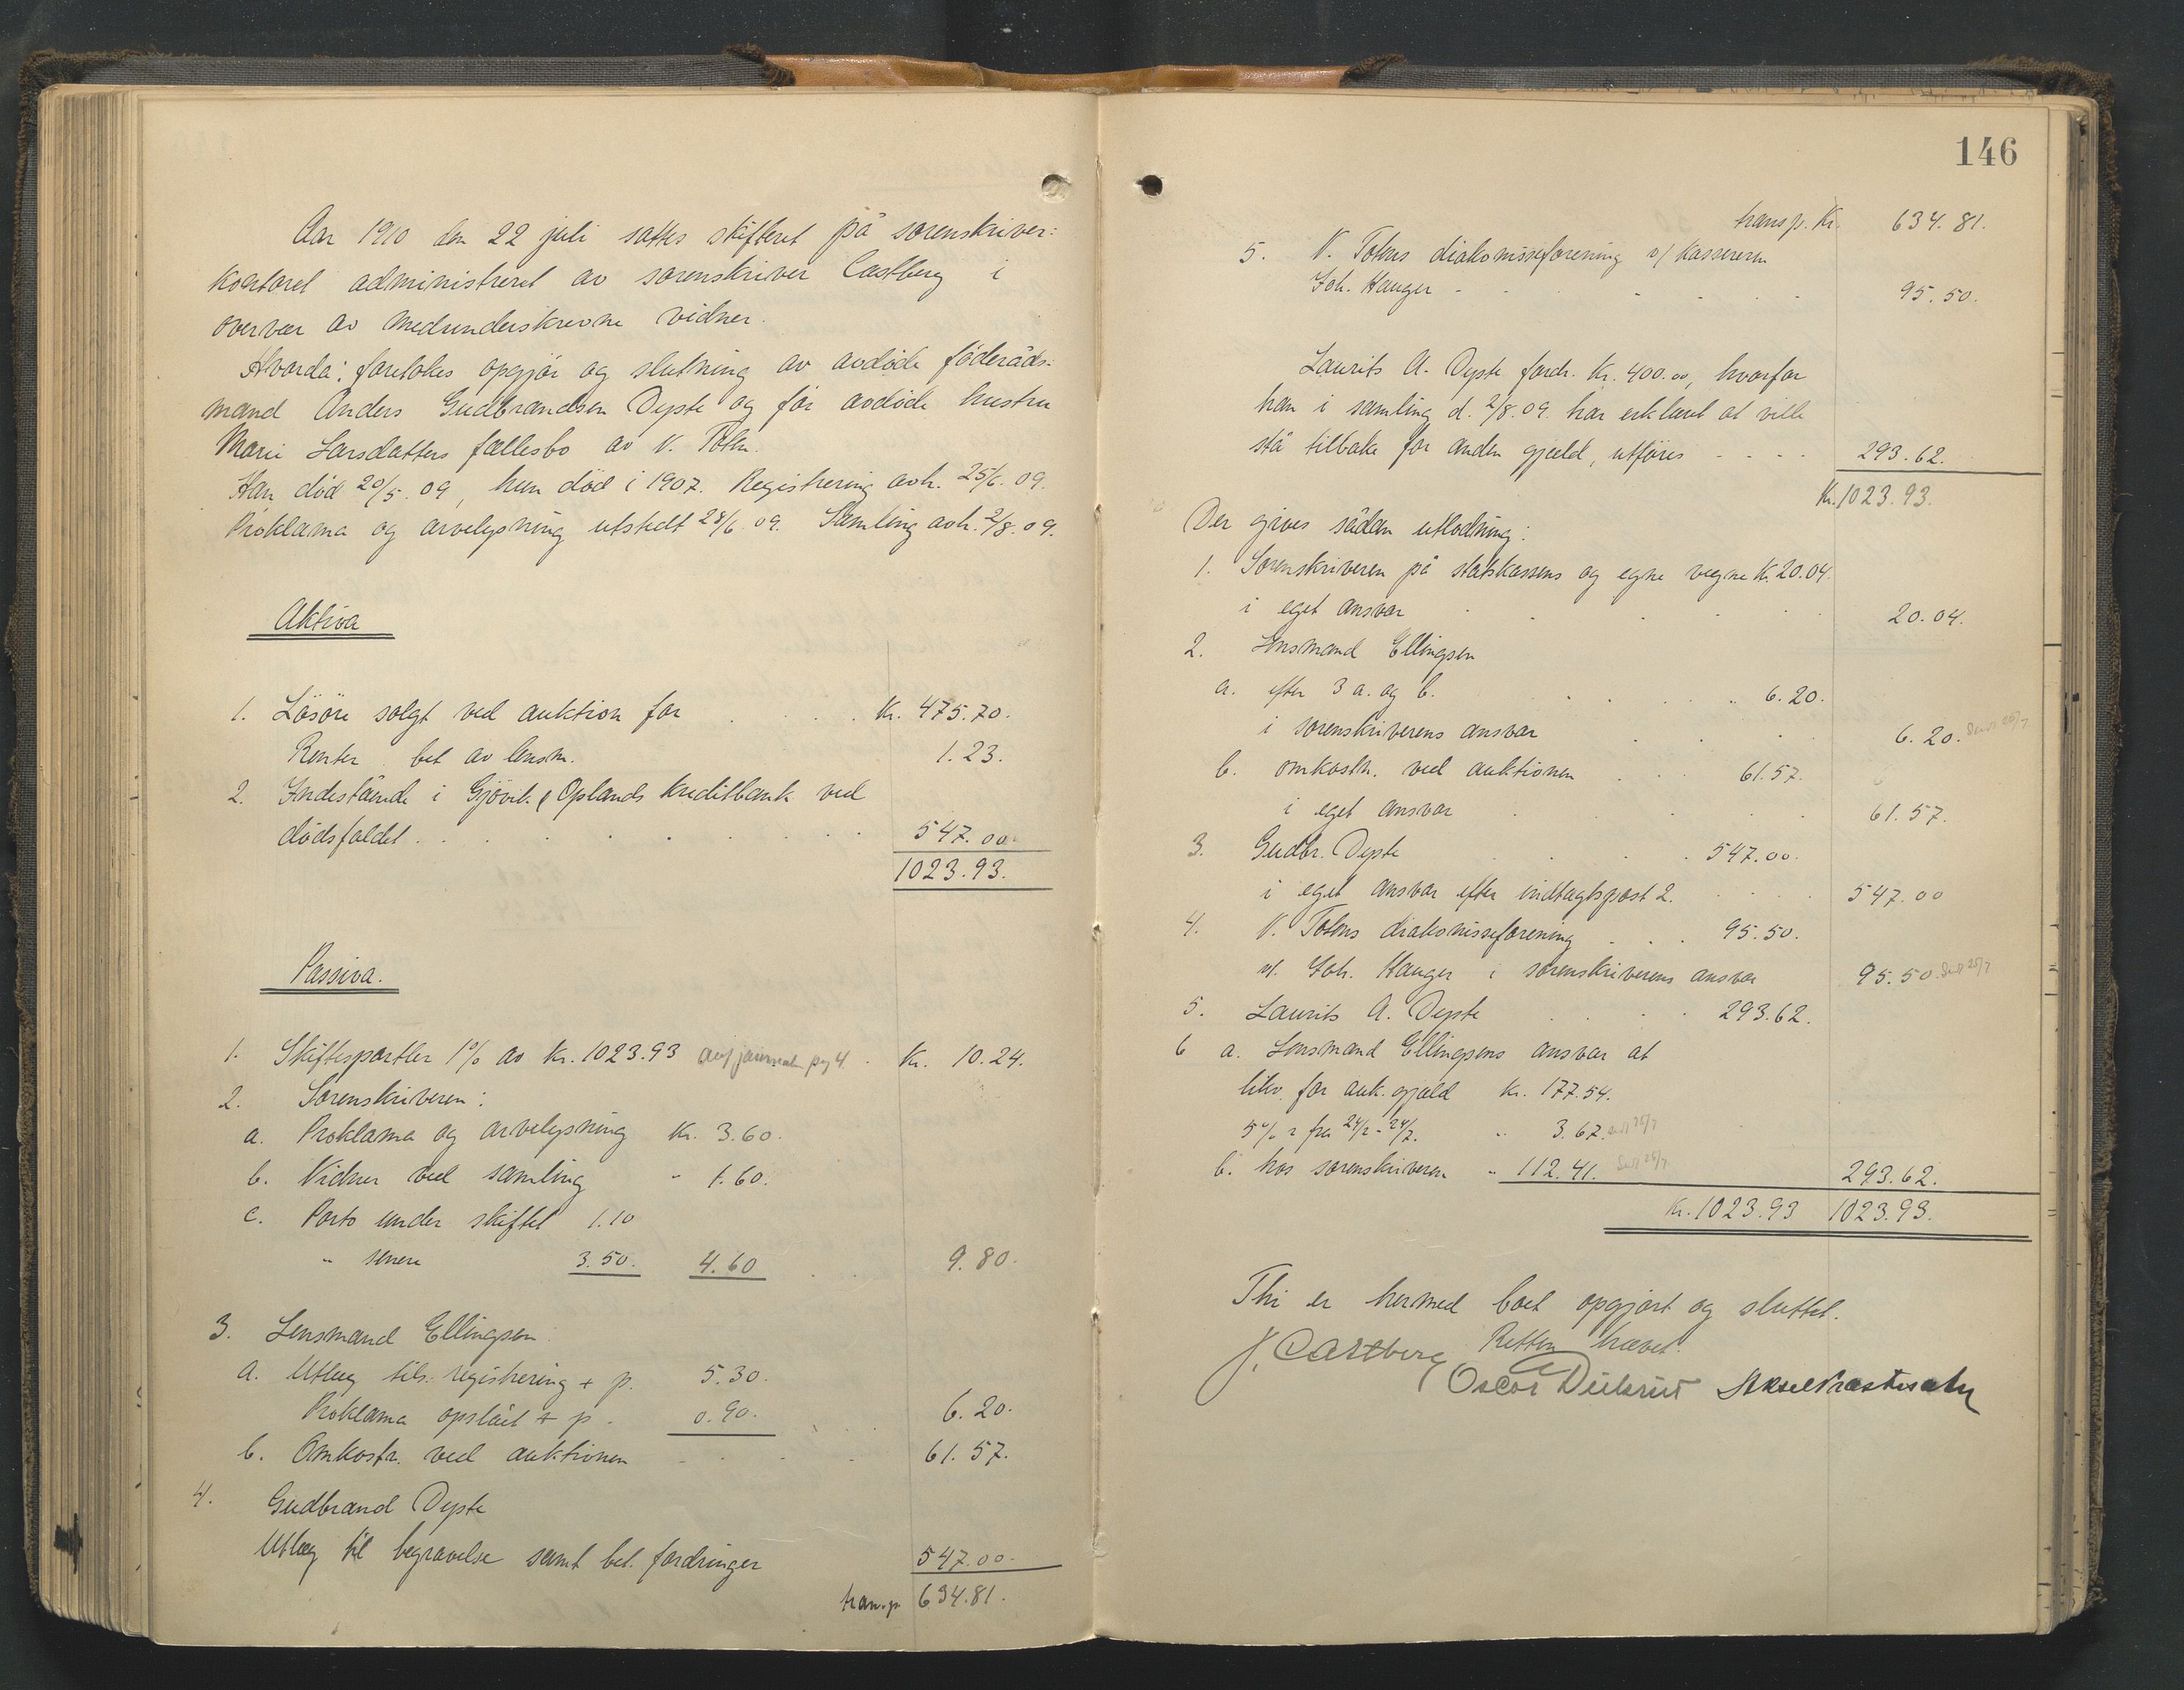 Aar 1910 den 22 juli sattes skifteret på sorenskriver-
kontoret administreret av sorenskriver Castberg i
overvær av medunderskrevne vidner.
Hvorda: foretokes opgjör og slutning av avdöde föderåds-
mand Anders Gudbrandsen Dyste og för avdöde hustru
Marie Larsdatters fællesbo av V. Toten.
Han död 20/5. 09, hun död i 1907. Registrering avh. 25/6. 09.
Proklama og arvelysning utstedt 28/6. 09. Samling avh. 2/8. 09.
Aktiva
1. Lösöre solgt ved auktion for . . . . Kr. 475.70.
Renter bet av lensm. 1.23.
2. Indestående i Gjövik & Oplands kreditbank ved
dödsfaldet . . . . . . 547.00.
1023.93.
Passiva.
1. Skiftesportler 1% av Kr. 1023.93 Kr. 10.24.
2. Sorenskriveren:
a. Proklama og arvelysning Kr. 3.60.
b. Vidner ved samling " 1.60.
c. Porto under skiftet 1.10
" senere 3.50. 4.60 . . 9.80.
3. Lensmand Ellingsen
a. Utlæg tils. registrering + p. 5.30.
Proklama opslået + p. 0.90. . . 6.20.
b. Omkostn. ved auktionen . . . . 61.57.
4. Gudbrand Dyste
Utlæg til begravelse samt bet. fordringer 547.00.
transp. 634.81.
146
transp. Kr. 634.81.
5. V. Totens diakonisseforening v/ kassereren
Joh. Hauger . . . . . 95.50.
Laurits A. Dyste fordr. Kr. 400.00, hvorfor
han i samling d. 2/8. 09. har erklæret at ville
stå tilbake for anden gjæld, utföres . . . . 293.62.
Kr. 1023.93.
Der gives sådan utlodning:
1. Sorenskriveren på statskassens og egne vegne Kr. 20.04.
i eget ansvar . . . . . 20.04.
2. Lensmand Ellingsen
a. efter 3 a. og b. . . . . 6.20.
i sorenskriverens ansvar . . . 6.20.
b. omkostn. ved auktionen . . . 61.57.
i eget ansvar . . . . . 61.57.
3. Gudbr. Dyste . . . . 547.00.
i eget ansvar efter indtægtspost 2. . . . 547.00
4. V. Totens diakonisseforening . . . 95.50.
v/. Joh. Hauger i sorenskriverens ansvar 95.50.
5. Laurits A. Dyste . . . . 293.62.
6 a. Lensmand Ellingsens ansvar at
likv. for auk. gjæld Kr. 177.54.
5% r fra 24/2 - 24/7. " 3.67.
b. hos sorenskriveren " 112.41. 293.62.
Kr. 1023.93 1023.93.
Thi er hermed boet opgjort og sluttet.
Retten hævet.
J. Castberg
Oscar